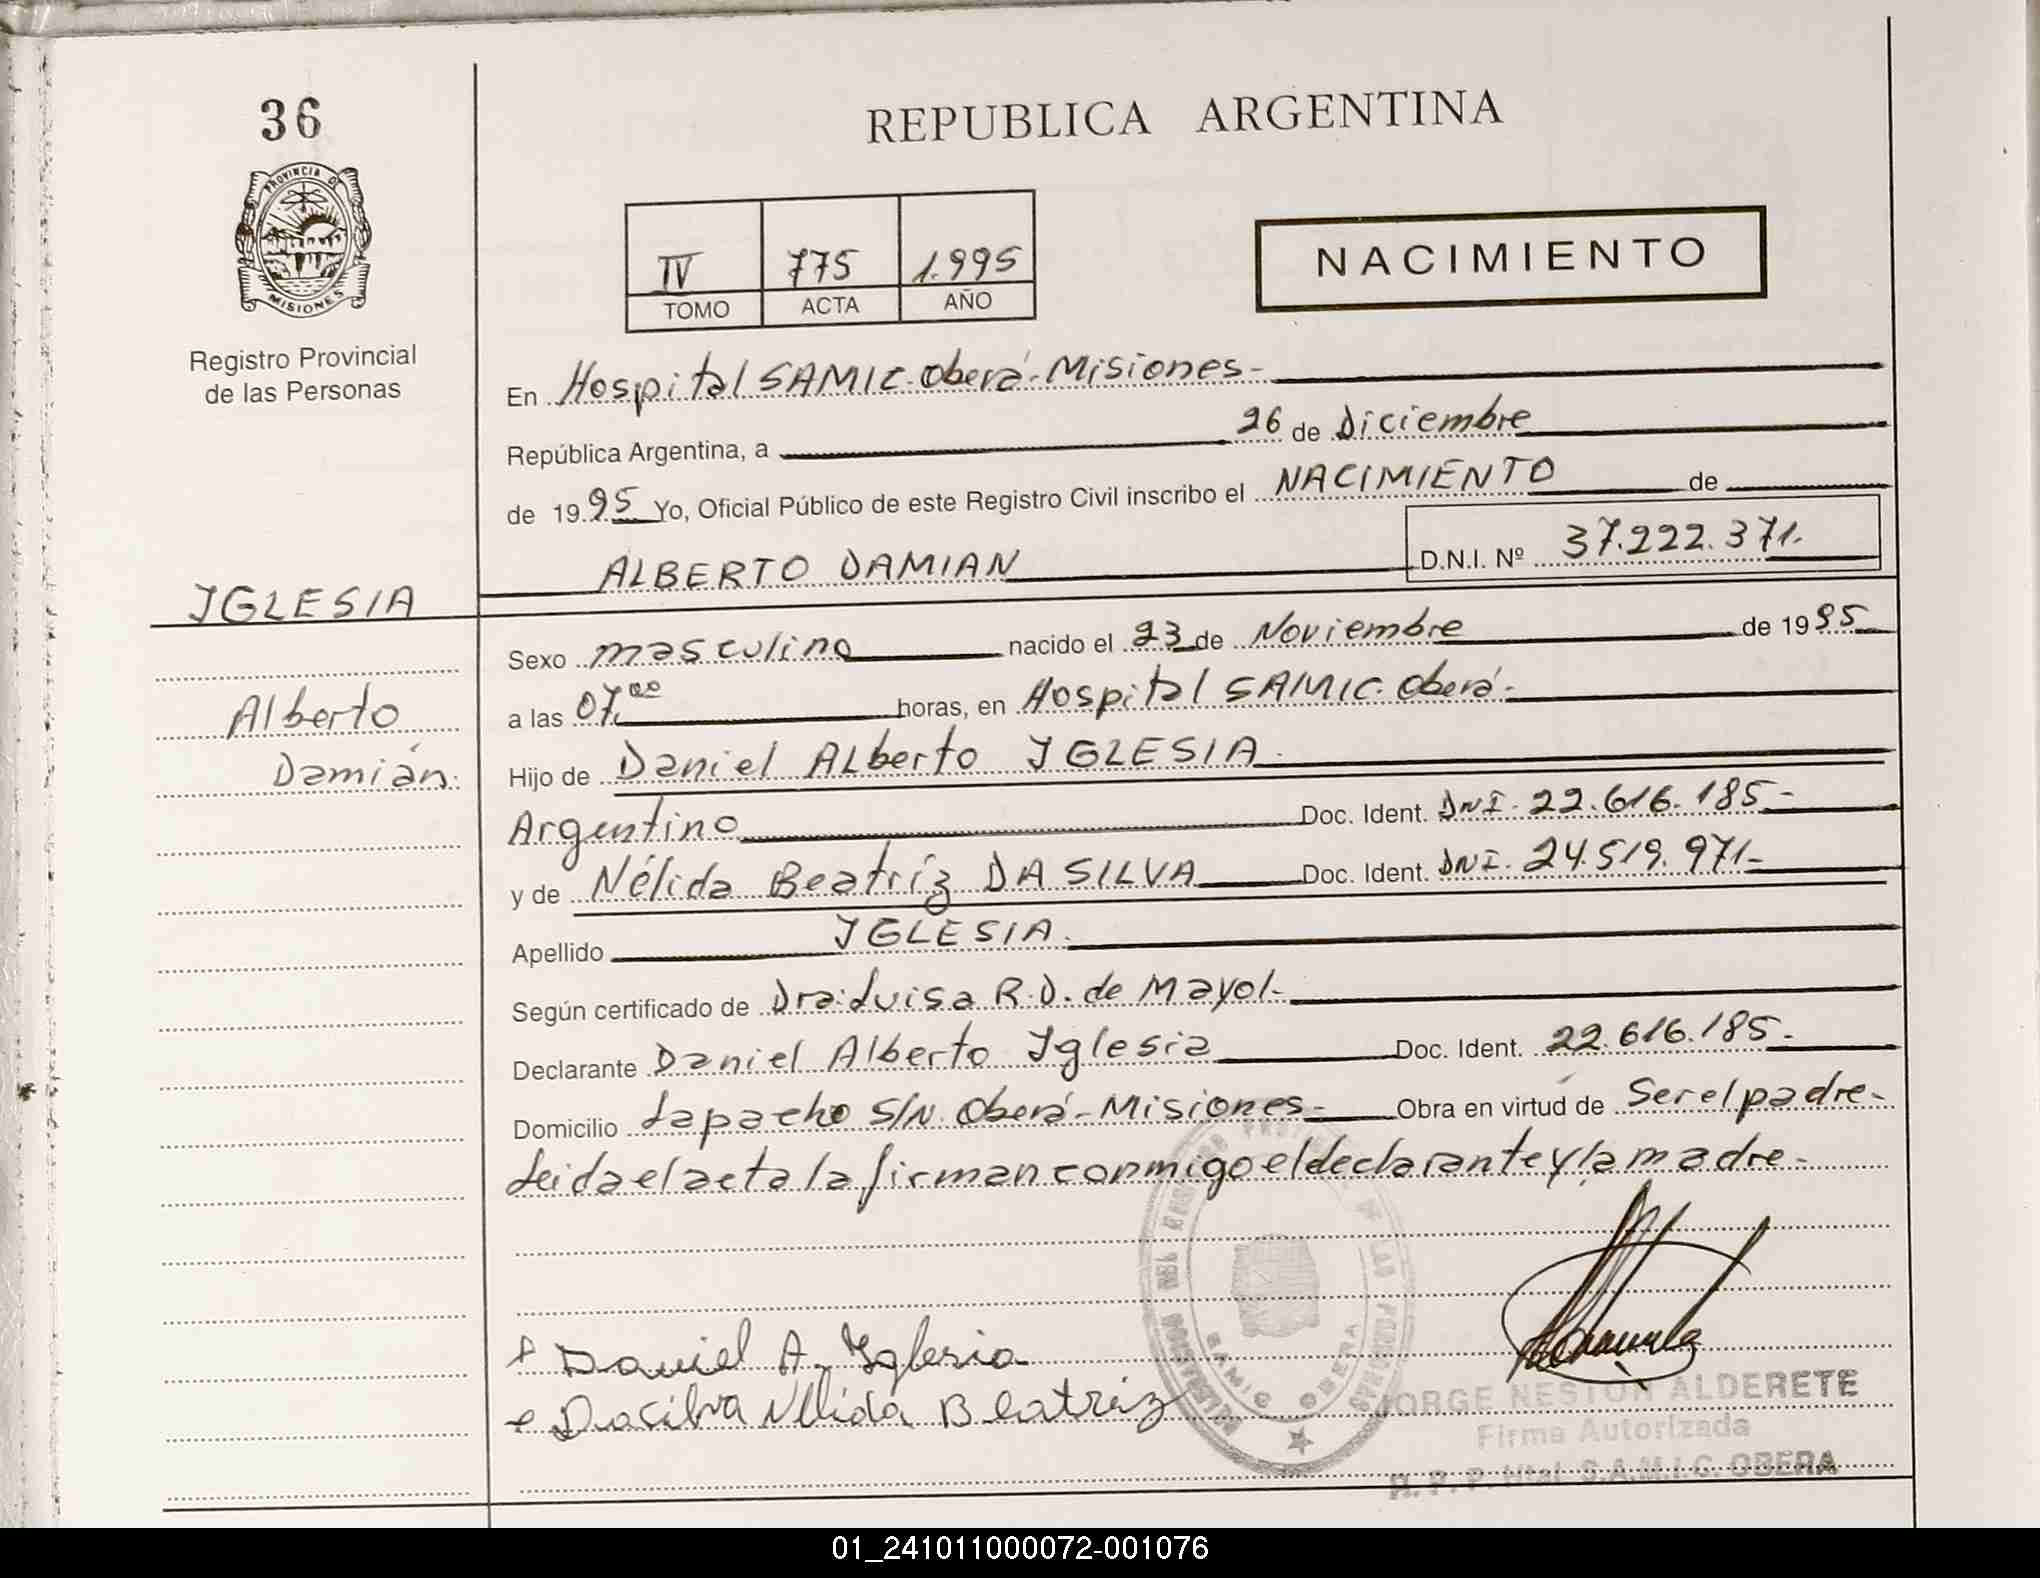 36
REPUBLICA ARGENTINA
PROVINCIA DE
MISIONES
IV 775 1.995
TOMO ACTA AÑO
NACIMIENTO
Registro Provincial
de las Personas
En Hospital SAMIC-Oberá-Misiones-
República Argentina, a 26 de Diciembre
de 1995 Yo, Oficial Público de este Registro Civil inscribo el NACIMIENTO de
ALBERTO DAMIAN D.N.I. Nº 37.222.371.
IGLESIA
Alberto
Damián.
Sexo masculino nacido el 23 de Noviembre de 1995
a las 07,00 horas, en Hospital SAMIC-Oberá-
Hijo de Daniel Alberto IGLESIA.
Argentino Doc. Ident. DNI. 22.616.185-
y de Nélida Beatríz DA SILVA Doc. Ident. DNI. 24.519.971-
Apellido IGLESIA.
Según certificado de Dra: Luisa R.D. de Mayol-
Declarante Daniel Alberto Iglesia Doc. Ident. 22.616.185-
Domicilio Lapacho S/N. Oberá-Misiones- Obra en virtud de Ser el padre-
Leida el acta la firman conmigo el declarante y la madre-
Daniel A. Iglesia
Dasilva Nélida Beatriz
SAMIC OBERA
JORGE NESTOR ALDERETE
Firma Autorizada
R. P. P. Htal. S.A.M.I.C. OBERA
01_241011000072-001076